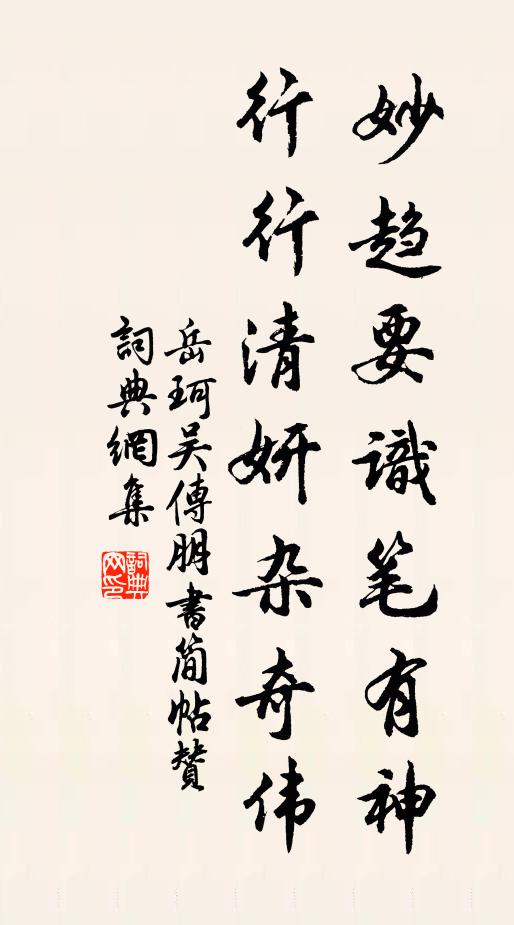 妙趋要識笔有神
行行清妍杂奇伟
岳珂吴傅朋書简帖贊
詞典網集
詞典網印